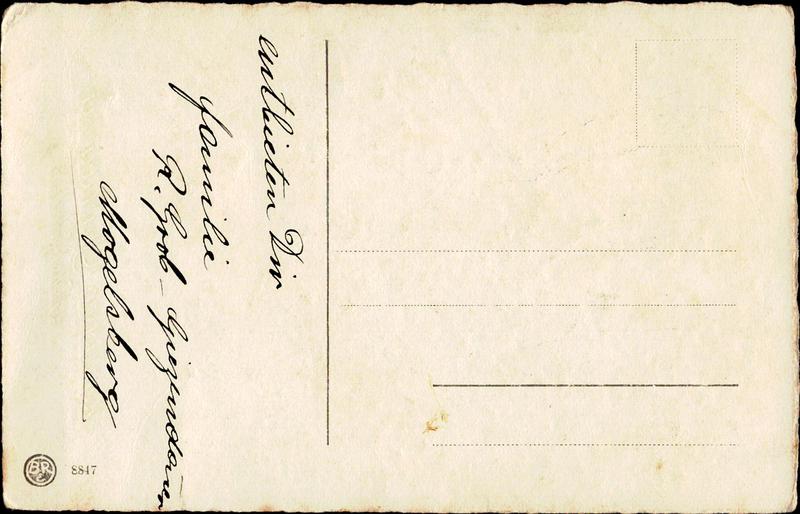 entbieten Dir
Familie
R. Grob - Giezendanner
Mogelsberg
BR
8847